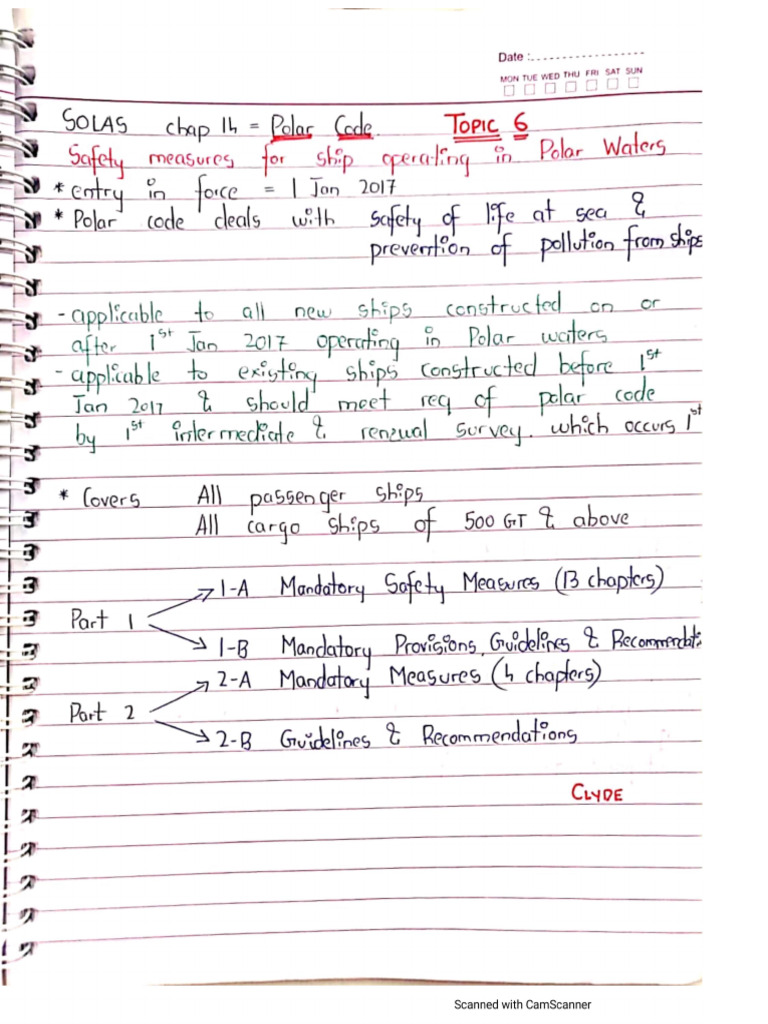 Date :
MON TUE WED THU FRI SAT SUN
SOLAS chap 14 = Polar Code. TOPIC 6
Safety measures for ship operating in Polar Waters
* entry in force = 1 Jan 2017
* Polar code deals with safety of life at sea &
prevention of pollution from ships
- applicable to all new ships constructed on or
after 1st Jan 2017 operating in Polar waters
- applicable to existing ships constructed before 1st
Jan 2017 & should meet req of polar code
by 1st intermediate & renewal survey. which occurs 1st
* Covers All passenger ships
All cargo ships of 500 GT & above
1-A Mandatory Safety Measures (13 chapters)
Part 1
1-B Mandatory Provisions, Guidelines & Recommendati
2-A Mandatory Measures (4 chapters)
Part 2
2-B Guidelines & Recommendations
CLYDE
Scanned with CamScanner